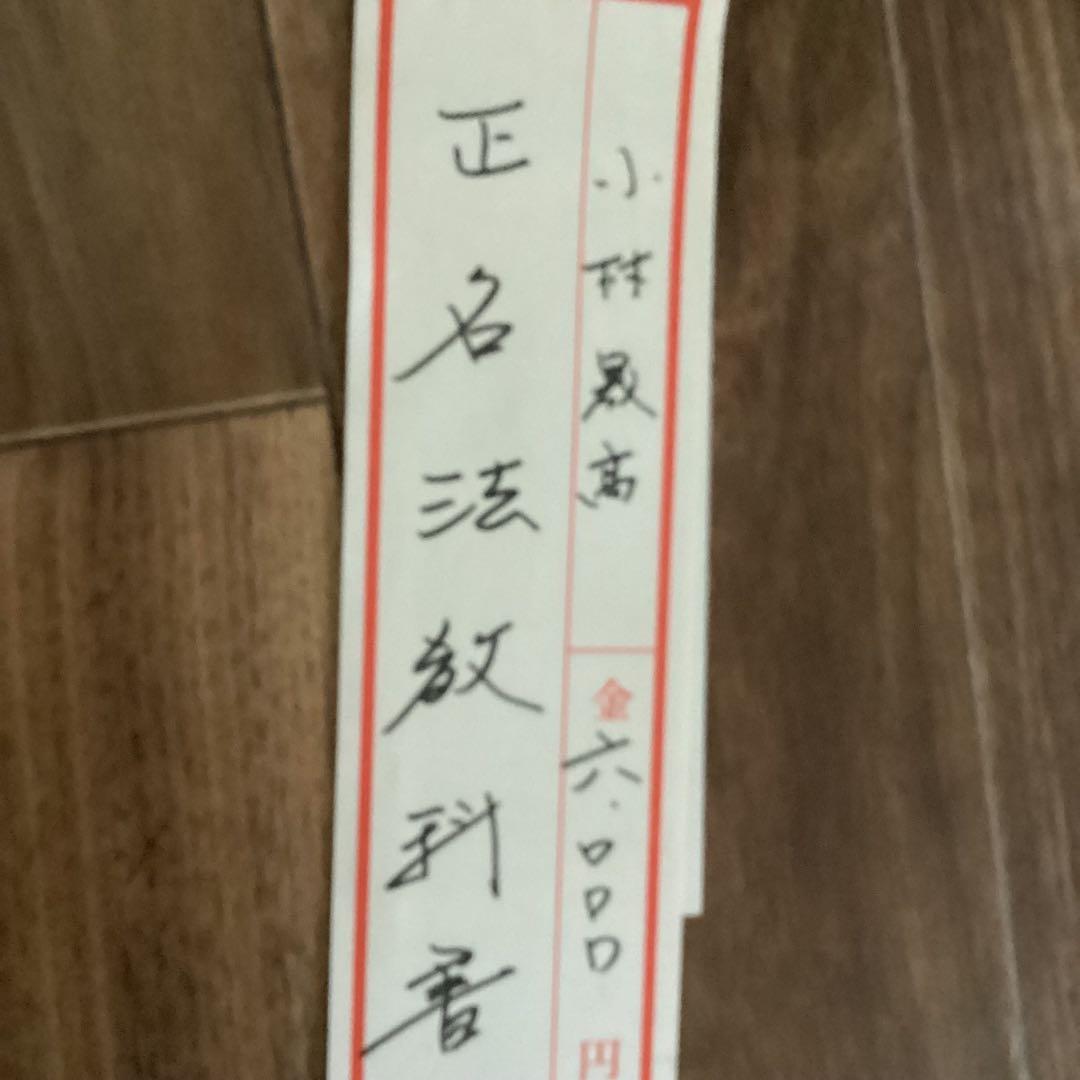 小林最高
金六.〇〇〇円
正名法教科書